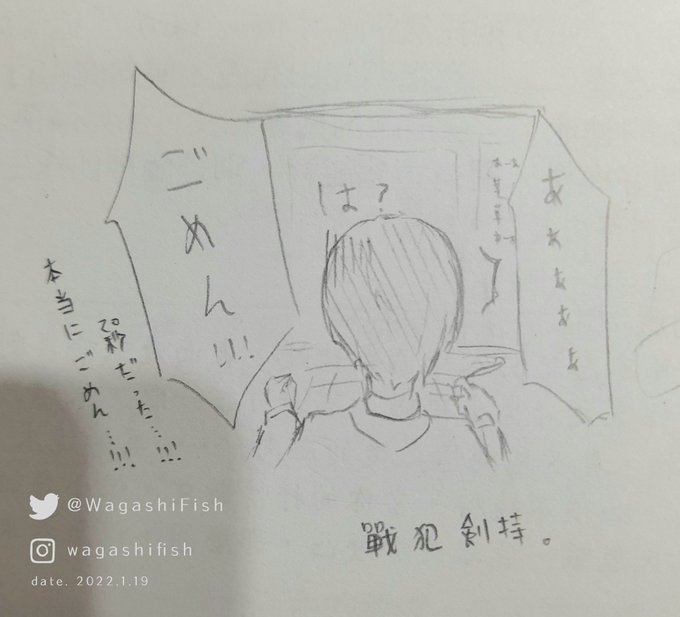 ああぁぁぁ
は?
ごめん!!!
20秒だった…!!!
本当にごめん…!!!
戰犯剣持。
@WagashiFish
wagashifish
date. 2022.1.19